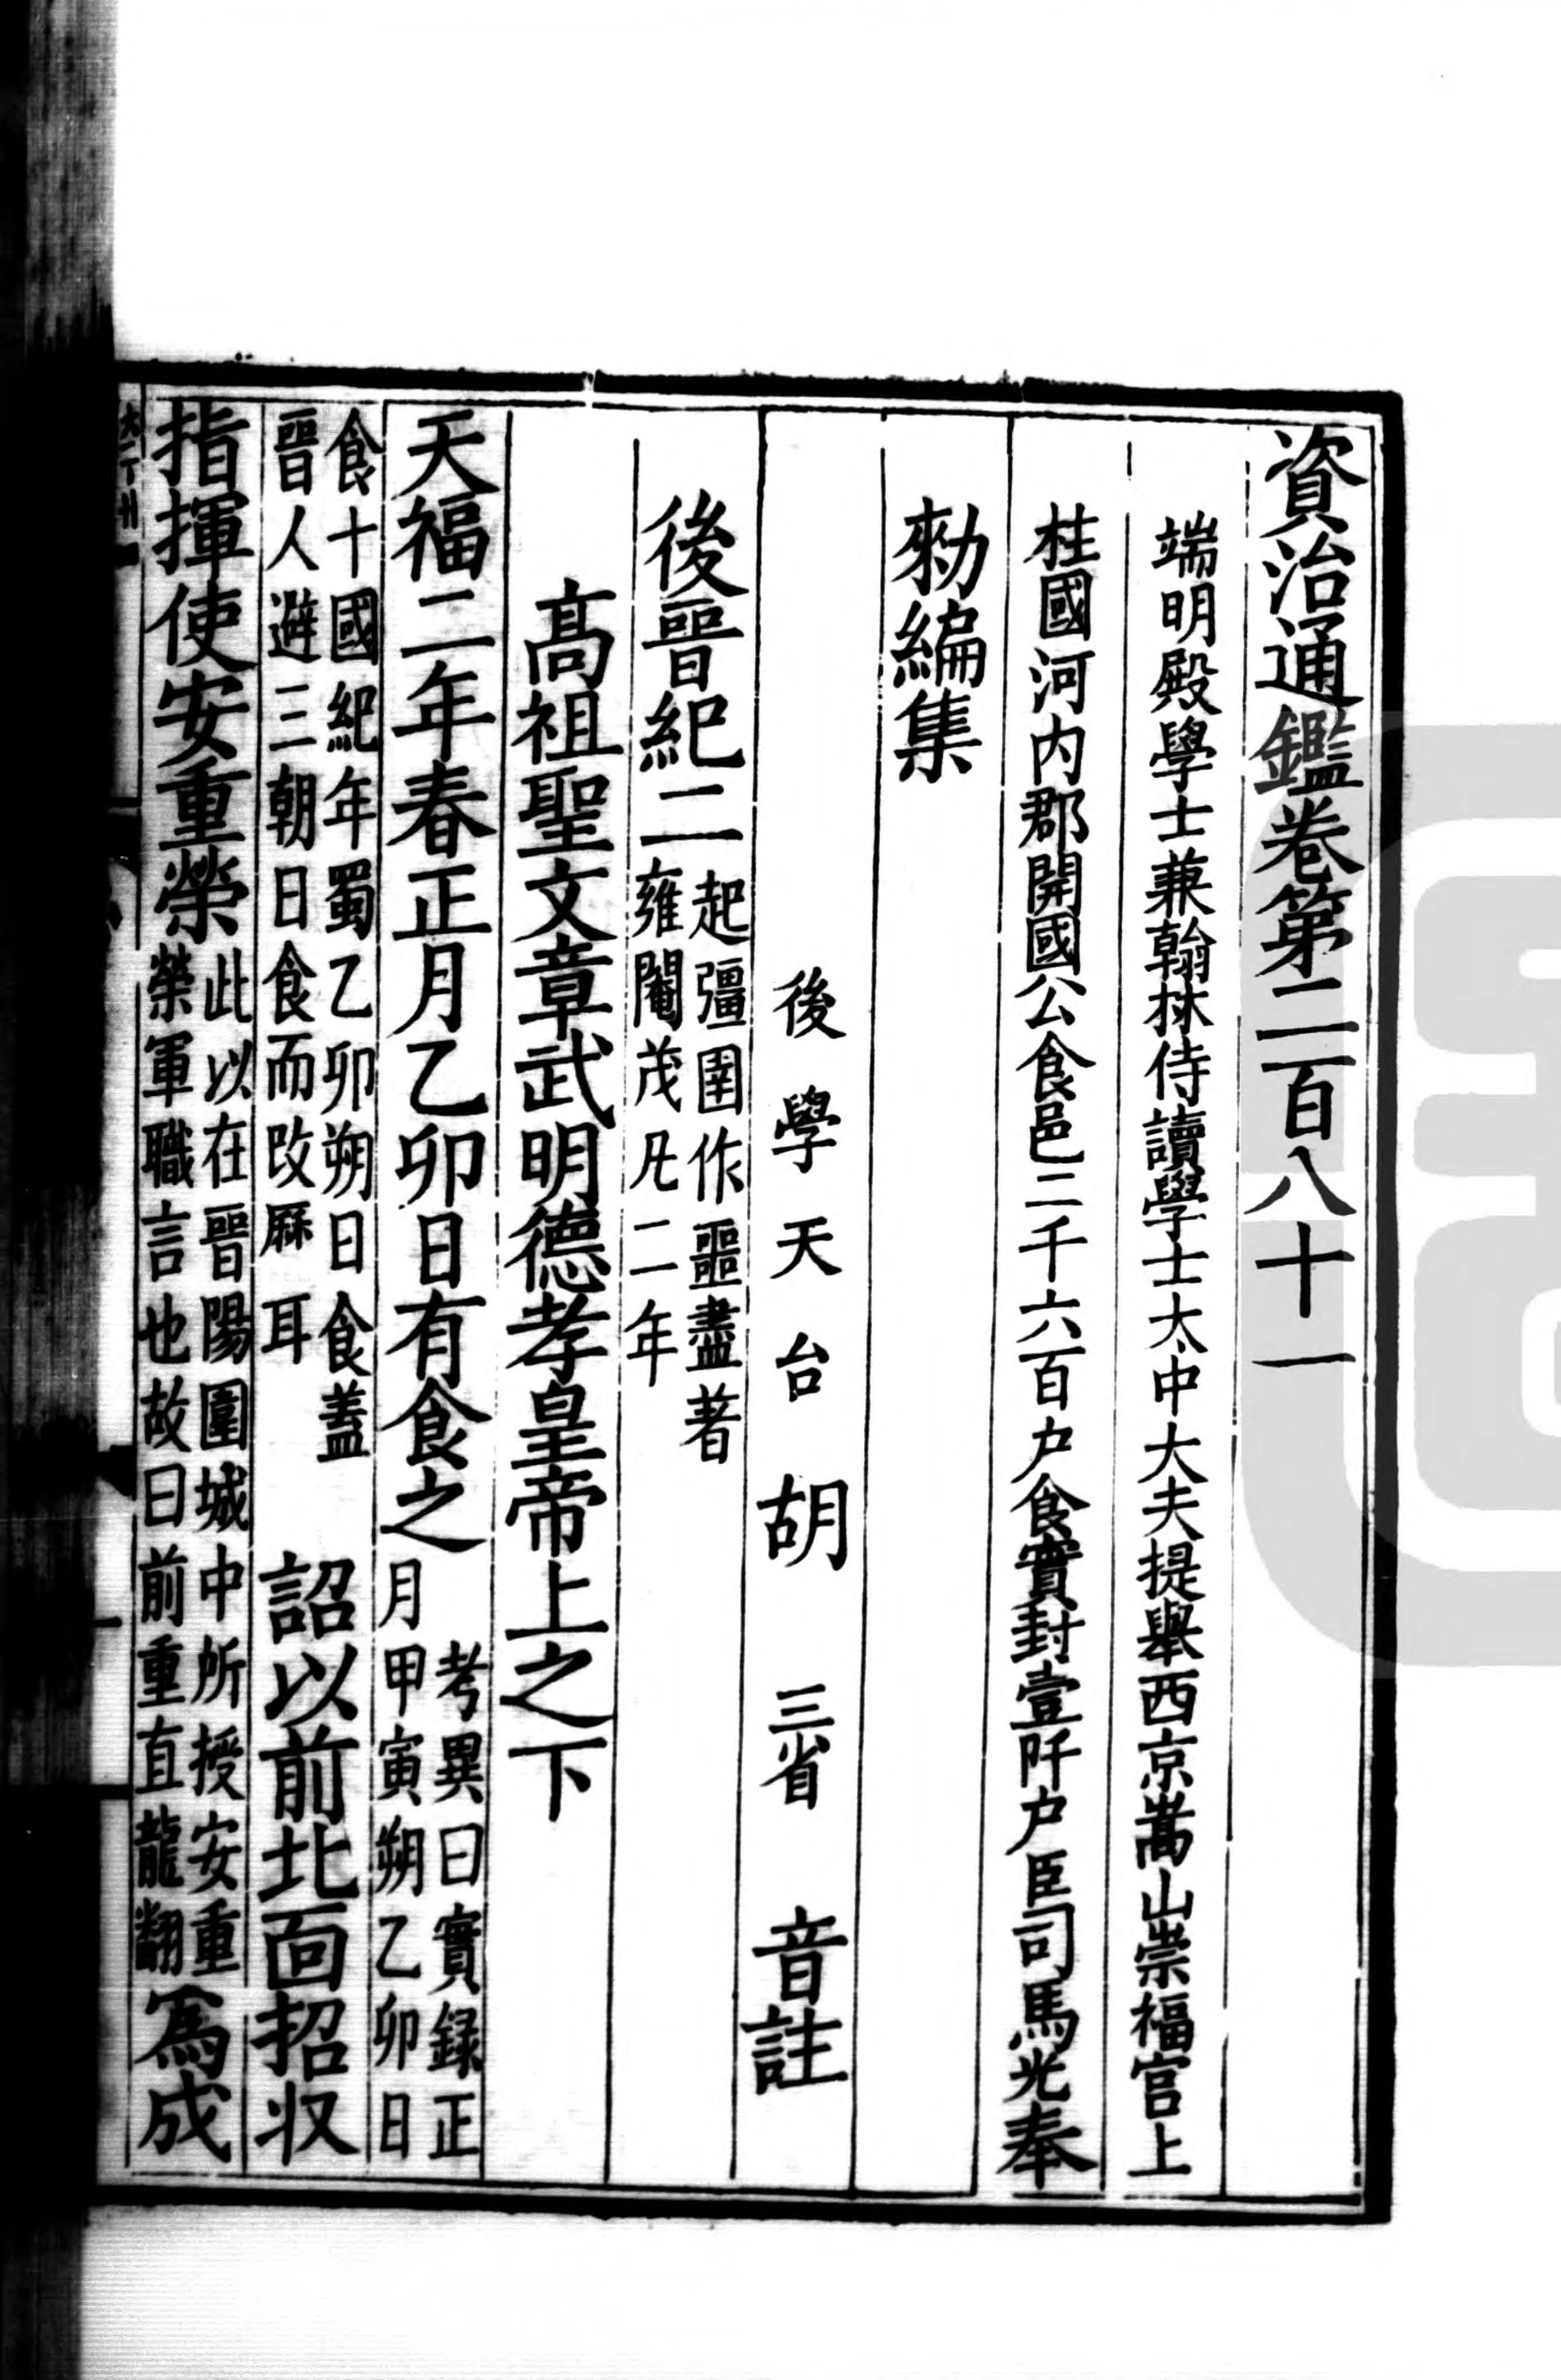 資治通鑑卷第二百八十一
端明殿學士兼翰林侍讀學士太中大夫提舉西京嵩山崇福宮上
柱國河内郡開國公食邑二千六百户食實封壹阡户臣司馬光奉
勑編集
後學天台胡三省音註
後晉紀二起彊圉作噩盡著
雍閹茂凡二年
高祖聖文章武明德孝皇帝上之下
天福二年春正月乙卯日有食之考異曰實録正
月甲寅朔乙卯日
食十國紀年蜀乙卯朔日食蓋
晉人避三朝日食而改厤耳
詔以前北面招収
指揮使安重榮此以在晉陽圍城中所授安重
榮軍職言也故曰前重直龍翻
爲成